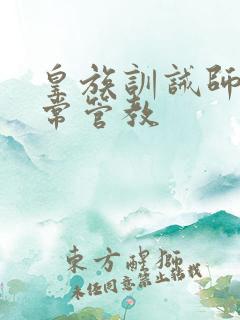 皇族訓誡師
常管教
東方醒獅
未经同意禁止转载